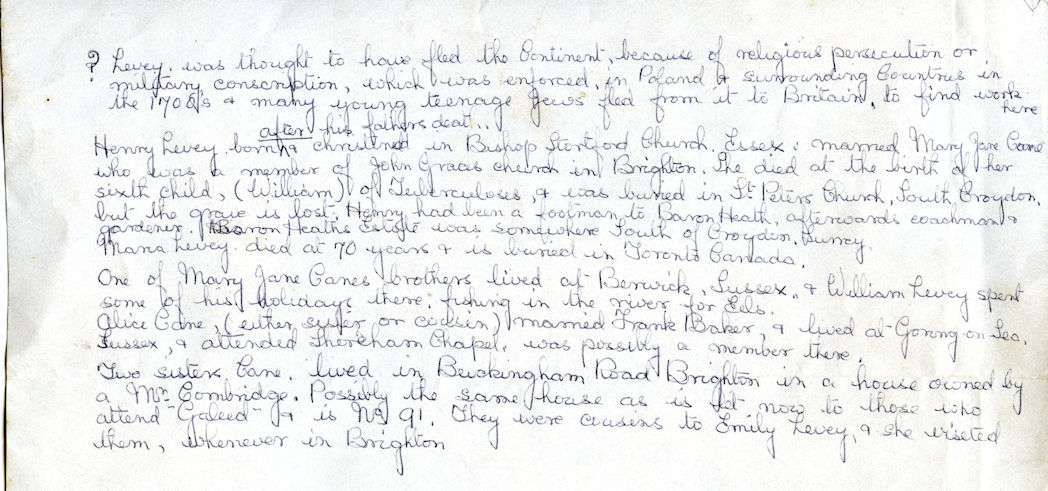 ? Levey. was thought to have fled the Continent, because of religious persecution or
military conscription, which was enforced, in Poland & surrounding Countries in
the 1700s & many young teenage Jews fled from it to Britain, to find work
here
after his fathers deat...
Henry Levey. born & christened in Bishop Stortford Church. Essex: married Mary Jane Cane
who was a member of John Graces church in Brighton. She died at the birth of her
sixth child, (William) of Tuberculoses, & was buried in St Peters Church, South, Croydon,
but the grave is lost. Henry had been a footman, to Baron Heath, afterwards coachman &
gardener. Baron Heaths Estate was somewhere South of Croydon. Surrey.
Maria Levey. died at 70 years & is buried in Toronto Canada.
One of Mary Jane Canes brothers lived at Berwick, Sussex., & William Levey spent
some of his holidays there: fishing in the river for Eels.
Alice Cane, (either sister or cousin) married Frank Baker, & lived at Goring-on-Sea,
Sussex, & attended Shoreham Chapel, was possibly a member there.
Two sisters Cane. lived in Buckingham Road Brighton in a house owned by
a Mr. Combridge. Possibly the same house as is let now to those who
attend "Galeed" & is No 91. They were cousins to Emily Levey, & she viseted
them, whenever in Brighton